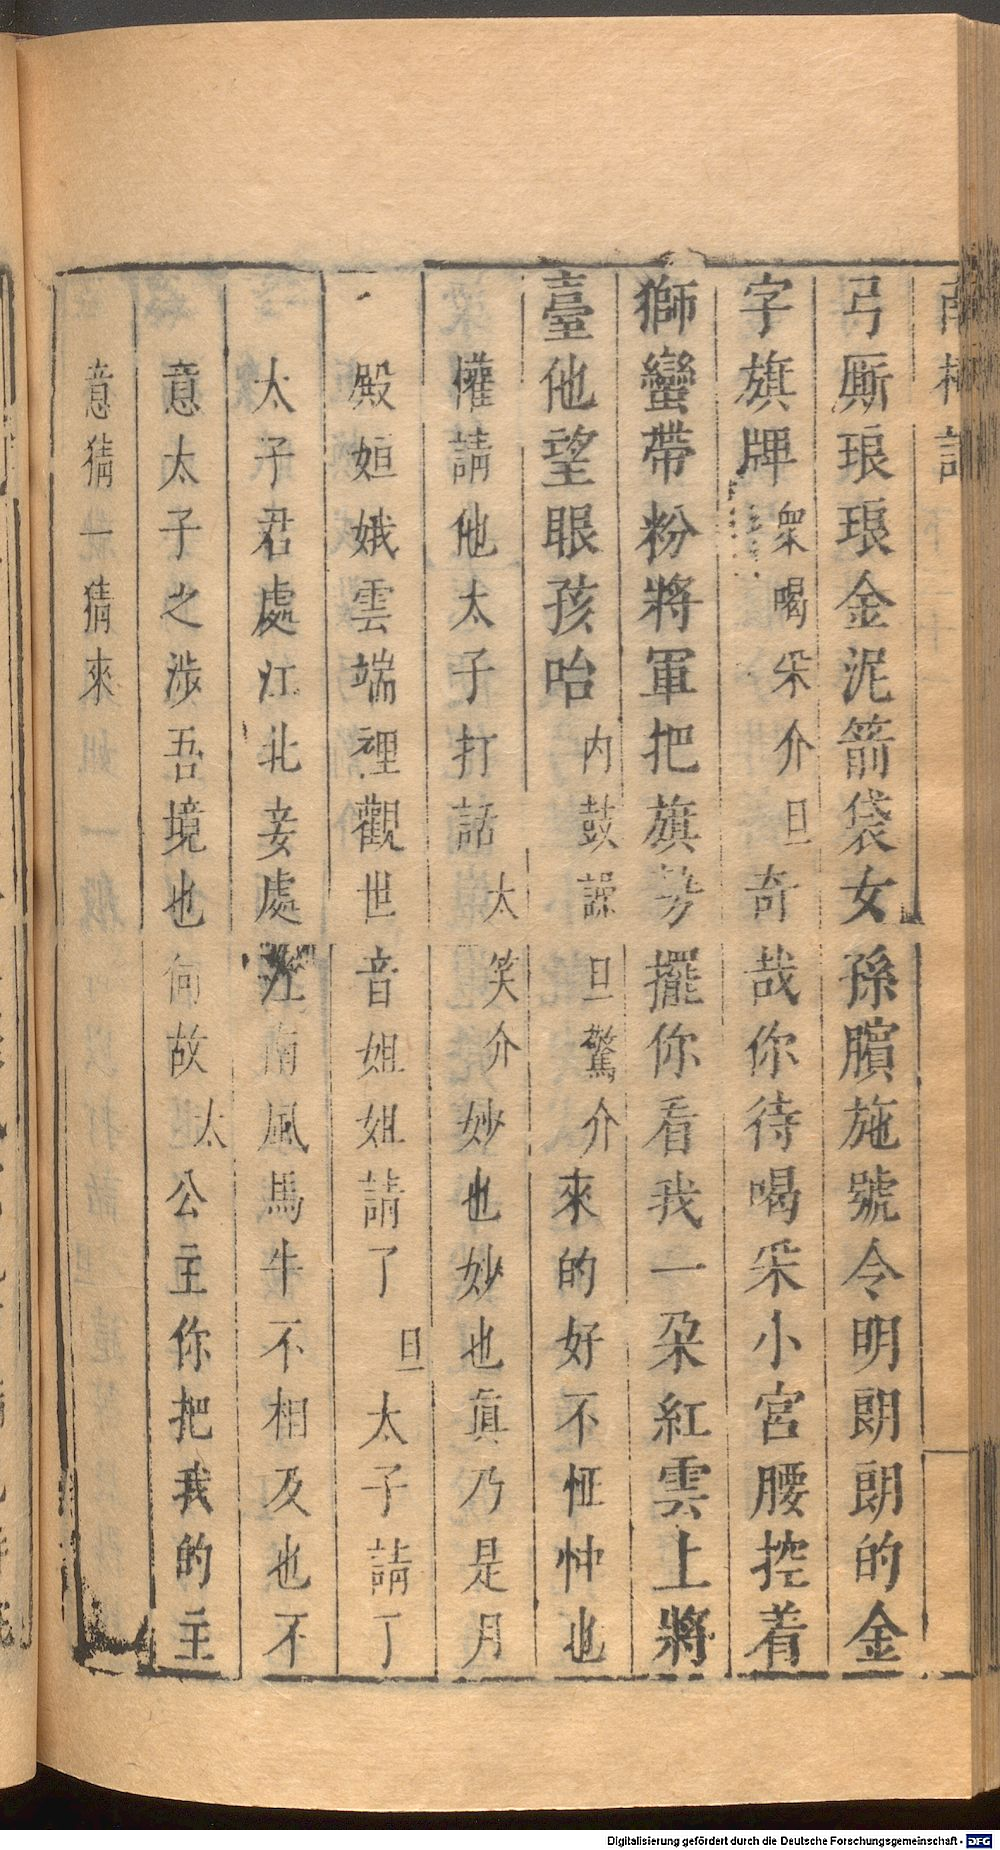 南柯記
弓厮琅琅金泥箭袋女孫臏施號令明朗朗的金
字旗牌衆喝采介旦奇哉你待喝采小宮腰控着
獅蠻帶粉將軍把旗势擺你看我一朶紅雲上將
臺他望眼孩咍内鼓譟旦驚介來的好不怔忡也
權請他太子打話太笑介妙也妙也真乃是月
殿姮娥雲端裡觀世音姐姐請了旦太子請了
太子君處江北妾處江南風馬牛不相及也不
意太子之涉吾境也何故太公主你把我的主
意猜一猜來
Digitalisierung gefördert durch die Deutsche Forschungsgemeinschaft - DFG